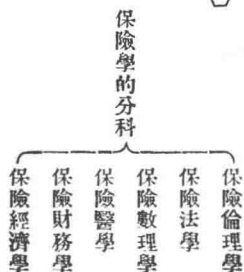 保險學的分科
保險倫理學
保險法學
保險數理學
保險醫學
保險財務學
保險經濟學